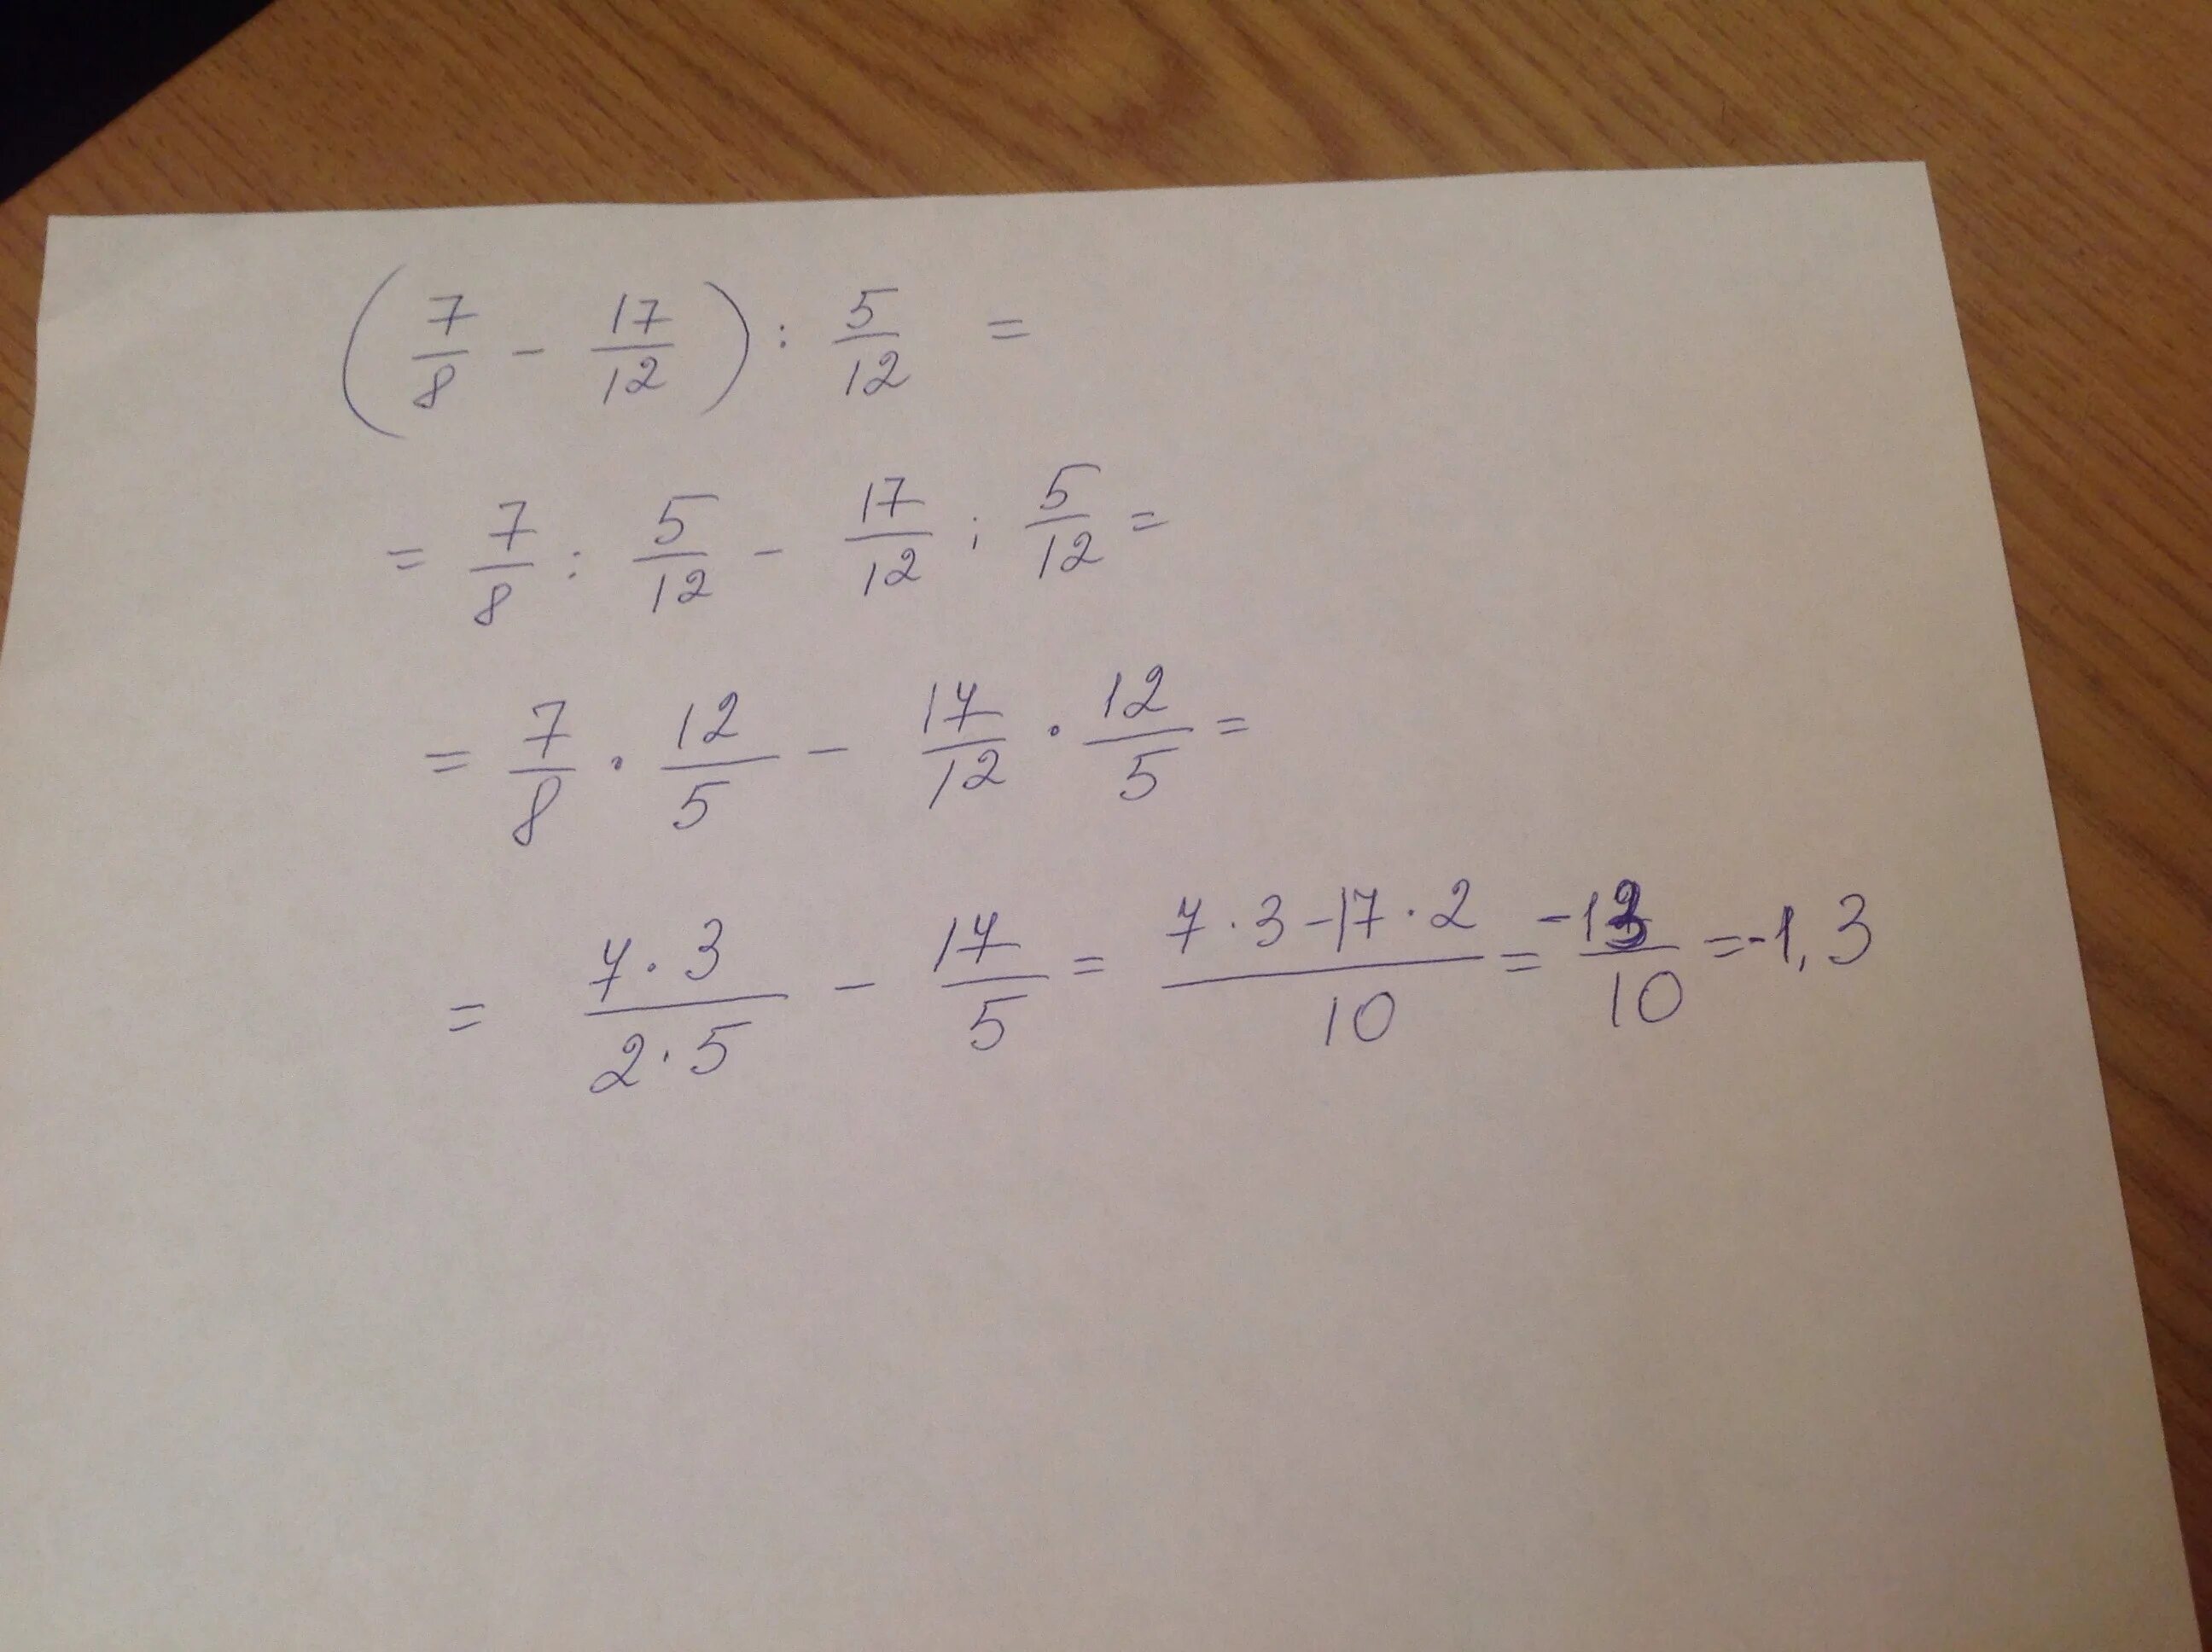 (7/8 - 17/12) : 5/12 =
= 7/8 : 5/12 - 17/12 : 5/12 =
= 7/8 · 12/5 - 17/12 · 12/5 =
= 7·3/2·5 - 17/5 = 7·3-17·2/10 = -13/10 = -1,3